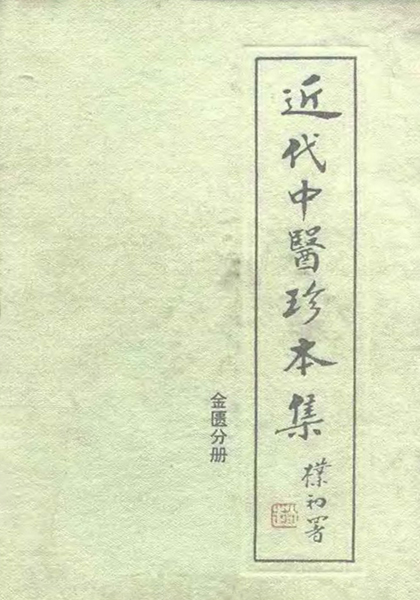 近代中醫珍本集
樸初署
金匮分册